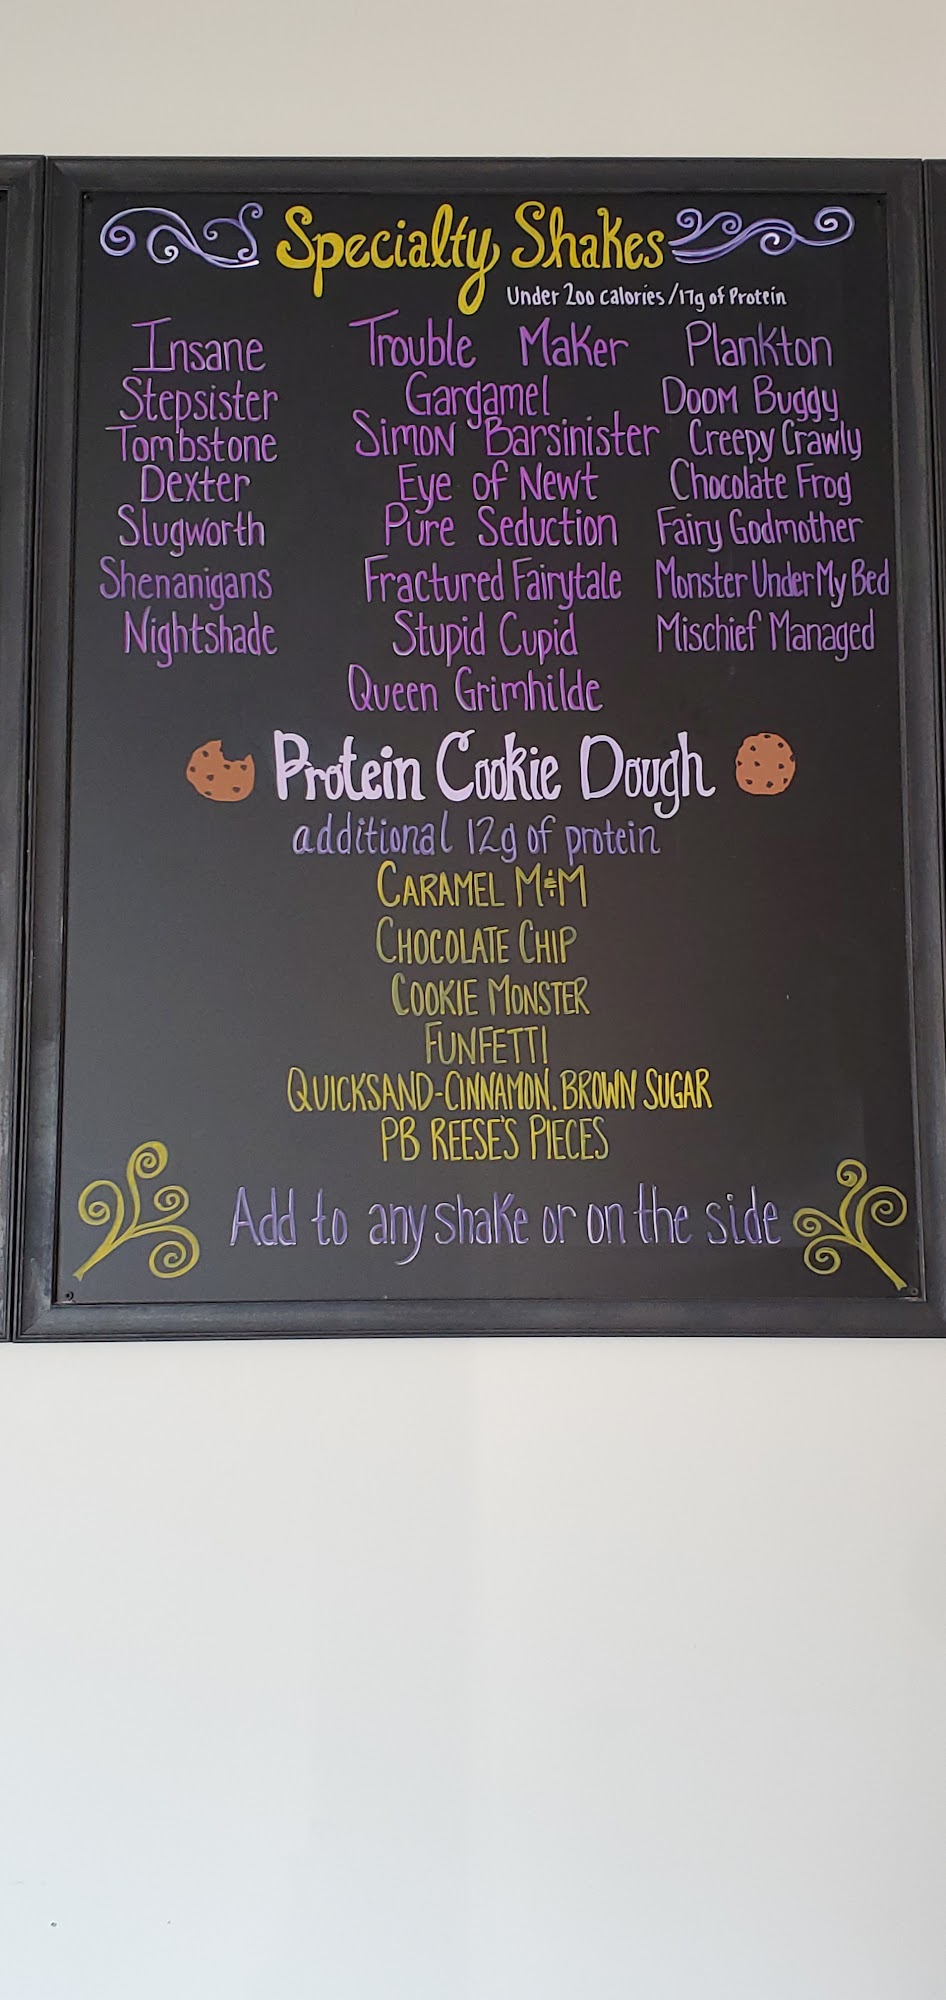 Specialty Shakes
Under 200 calories/17g of Protein
Insane
Stepsister
Tombstone
Dexter
Slugworth
Shenanigans
Nightshade
Trouble Maker
Gargamel
Simon Barsinister
Eye of Newt
Pure Seduction
Fractured Fairytale
Stupid Cupid
Queen Grimhilde
Plankton
Doom Buggy
Creepy Crawly
Chocolate Frog
Fairy Godmother
Monster Under My Bed
Mischief Managed
Protein Cookie Dough
additional 12g of protein
CARAMEL M&M
CHOCOLATE CHIP
COOKIE MONSTER
FUNFETTI
QUICKSAND-CINNAMON. BROWN SUGAR
PB REESE'S PIECES
Add to any shake or on the side